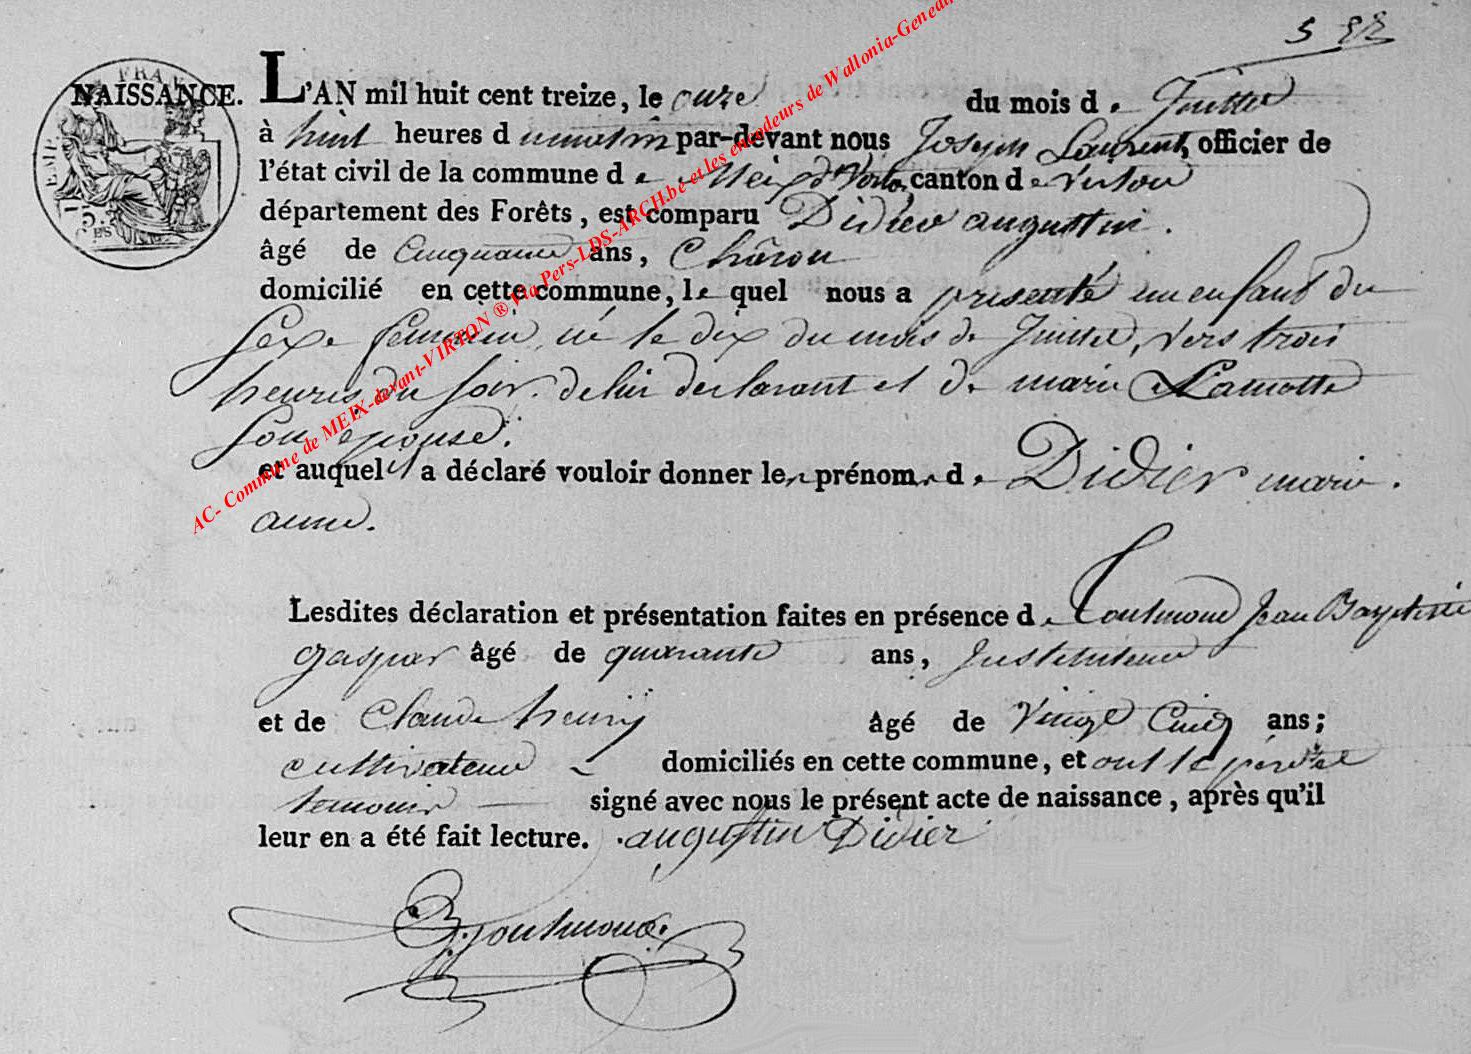 5 82
NAISSANCE. L'AN mil huit cent treize, le onze du mois de Juillet
à huit heures du matin par-devant nous Joseph Laurent, officier de
l'état civil de la commune de Meix dt Virton, canton de virton
département des Forêts, est comparu Didier augustin.
âgé de Cinquante ans, Charon
domicilié en cette commune, le quel nous a presenté un enfant du
sexe feminin, né le dix du mois de Juillet, vers trois
heures du soir. de lui declarant et de marie Lamotte
son epouse.
et auquel il a déclaré vouloir donner les prénoms de Didier marie.
anne.
Lesdites déclaration et présentation faites en présence de Toutmond Jean Baptiste
gaspar âgé de quarante ans, Instituteur
et de Claude henrÿ âgé de Vingt Cinq ans;
cultivateur domiciliés en cette commune, et ont le père et
temoin signé avec nous le présent acte de naissance, après qu'il
leur en a été fait lecture. augustin Didier
Toutmond.
EMP FRAN
AC- Commune de MEIX-devant-VIRTON ® Via Pers-LDS-ARCH.be et les encodeurs de Wallonia-Geneal